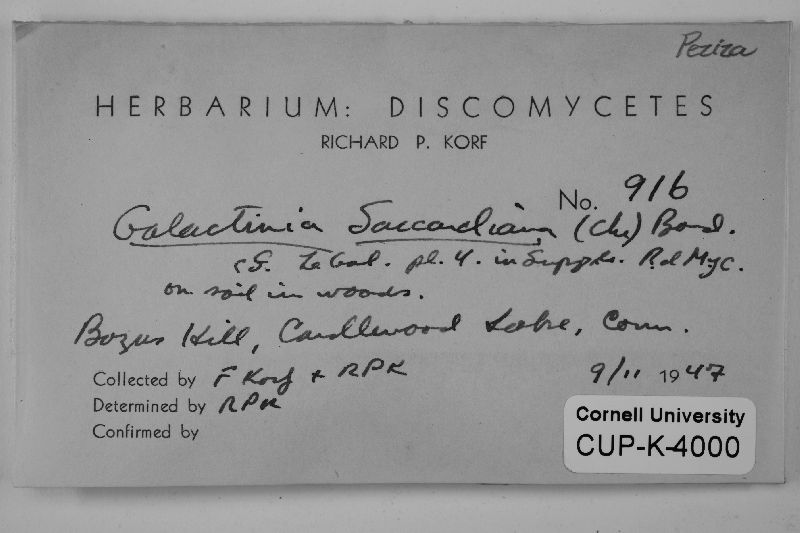 Peziza
HERBARIUM: DISCOMYCETES
RICHARD P. KORF
No. 916
Galactinia Saccardiana (Cke) Boud.
cf. LeGal. pl. 4. in Suppl. R.d Myc.
on soil in woods.
Hill, Candlewood Lake, Conn.
Collected by F Korf + RPK 9/11 1947
Determined by RPK
Confirmed by
Cornell University
CUP-K-4000